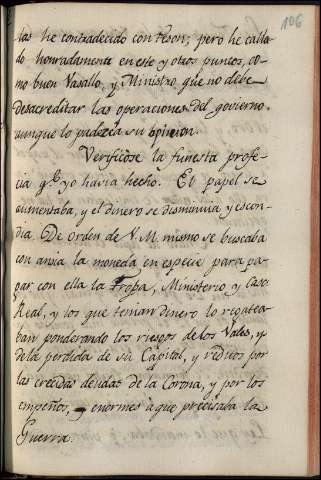 106
las he contradecido con teson; pero he calla-
do honradamente en este y otros puntos, co-
mo buen Vasallo, y Ministro que no debe
desacreditar las operaciones del govierno,
aunque lo padezca su opinion.
Verificòse la funesta profe-
cia q.e yo havia hecho. El papel se
aumentaba, y el dinero se disminuia y escon-
dia. De orden de V. M. mismo se buscaba
con ansia la moneda en especie para pa-
gar con ella la Tropa, Ministerio y Casa
Real, y los que tenian dinero lo regatea-
ban ponderando los riesgos de los Vales, y
de la perdida de su Capital, y reditos por
las crecidas deudas de la Corona, y por los
empeños, enormes à que precisaba la
Guerra.